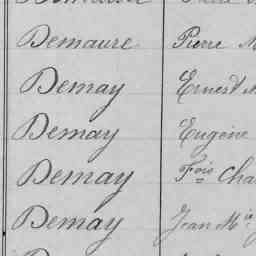 Demaure Pierre M
Demay Ernest
Demay Eugène
Demay Fois Cha
Demay Jean Mie